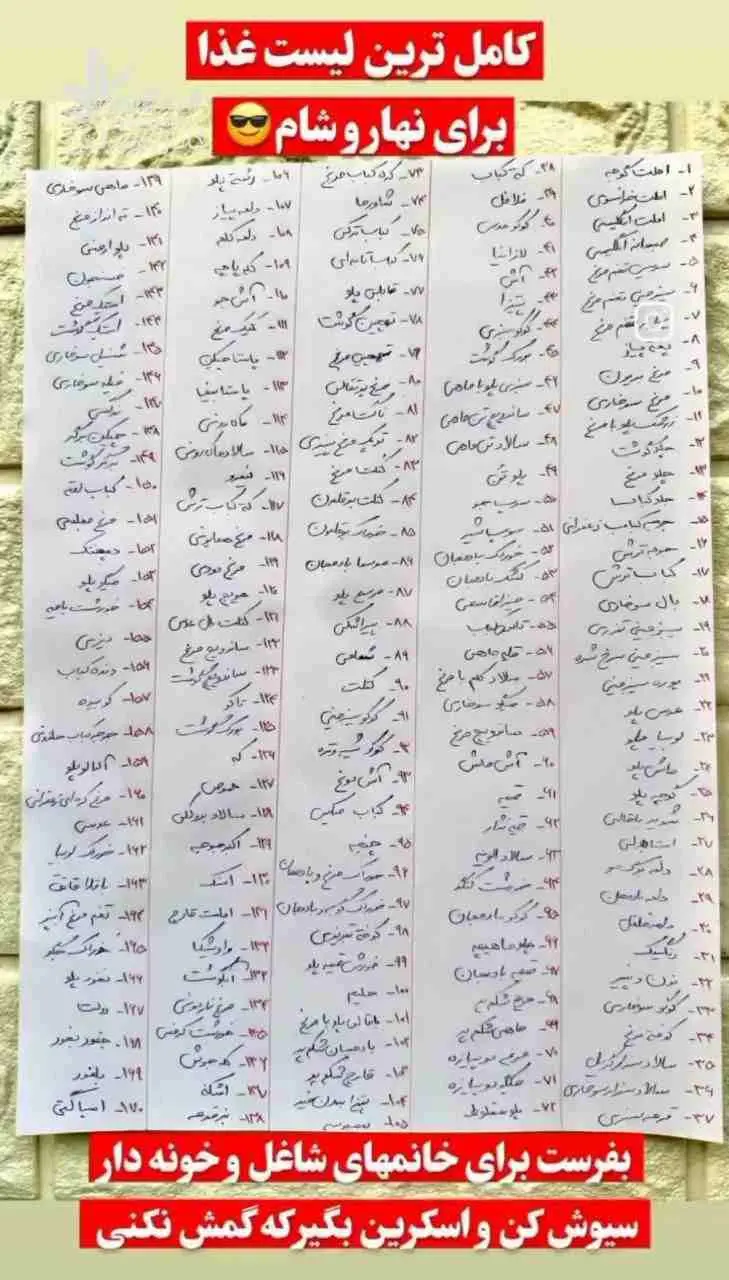 کامل ترین لیست غذا
برای نهار و شام😎
۱- املت گوجه
۲- املت فرانسوی
۳- املت انگلیسی
۴- صبحانه انگلیسی
۵- سوسیس تخم مرغ
۶- سیب زمینی تخم مرغ
۷- تخم مرغ
۸-
۹- مرغ بریون
۱۰- مرغ سوخاری
۱۱- زرشک پلو با مرغ
۱۲- چلو گوشت
۱۳- چلو مرغ
۱۴- چلو کباب
۱۵- جوجه کباب زعفرانی
۱۶- جوجه ترش
۱۷- کباب ترش
۱۸- بال سوخاری
۱۹- سیب زمینی تنوری
۲۰- سیب زمینی سرخ شده
۲۱- پوره سیب زمینی
۲۲- عدس پلو
۲۳- لوبیا پلو
۲۴- ماش پلو
۲۵- گوجه پلو
۲۶- شوید باقالی
۲۷- استامبولی
۲۸- دلمه برگ مو
۲۹- دلمه بادمجان
۳۰- دلمه فلفل
۳۱-
۳۲- نون و پنیر
۳۳- کوکو سوخاری
۳۴- کوفته مرغ
۳۵- سالاد سزار گریل
۳۶- سالاد سزار سوخاری
۳۷- قرمه سبزی
۳۸- کباب
۳۹- فلافل
۴۰- کوکو عدس
۴۱- لازانیا
۴۲- آش
۴۳- پیتزا
۴۴- کوکو سبزی
۴۵- گوشت
۴۶- سبزی پلو با ماهی
۴۷- ساندویچ تن ماهی
۴۸- سالاد تن ماهی
۴۹- پلو تن
۵۰- سوپ جو
۵۱- سوپ شیر
۵۲- خوراک بادمجان
۵۳- کشک بادمجان
۵۴- میرزاقاسمی
۵۵-
۵۶- قلیه ماهی
۵۷- سالاد کلم با مرغ
۵۸- میگو سوخاری
۵۹- ساندویچ مرغ
۶۰- آش ماش
۶۱- قیمه
۶۲- قیمه نثار
۶۳- سالاد الویه
۶۴- خورشت کنگر
۶۵- کوکو بادمجان
۶۶- چلو ماهیچه
۶۷- قیمه بادمجان
۶۸- مرغ شکم پر
۶۹- ماهی شکم پر
۷۰- مرغ دوپیازه
۷۱- میگو دوپیازه
۷۲- پلو مخلوط
۷۳- کباب مرغ
۷۴- شاورما
۷۵- کباب ترکی
۷۶- کباب تابه‌ای
۷۷- قابلی پلو
۷۸- ته‌چین گوشت
۷۹- ته‌چین مرغ
۸۰- مرغ پرتقالی
۸۱- ناگت مرغ
۸۲- مرغ پنیری
۸۳- کتلت مرغ
۸۴- کتلت بوقلمون
۸۵- خوراک بوقلمون
۸۶- بادمجان
۸۷- مرصع پلو
۸۸- پیراشکی
۸۹- شامی
۹۰- کتلت
۹۱- کوکو سیب زمینی
۹۲- کوکو شیر و تره
۹۳- آش دوغ
۹۴- کباب چنگیر
۹۵- چنجه
۹۶- خوراک مرغ و بادمجان
۹۷- خوراک گوشت و بادمجان
۹۸- کوفته تبریزی
۹۹- خورش قیمه پلو
۱۰۰- حلیم
۱۰۱- باقالی پلو با مرغ
۱۰۲- بادمجان شکم پر
۱۰۳- قارچ شکم پر
۱۰۴-
۱۰۵-
۱۰۶- رشته پلو
۱۰۷- دلمه پیاز
۱۰۸- دلمه کلم
۱۰۹- کله پاچه
۱۱۰- آش جو
۱۱۱- کیک مرغ
۱۱۲- پاستا
۱۱۳- پاستا
۱۱۴-
۱۱۵- سالاد ماکارونی
۱۱۶-
۱۱۷- کباب ترش
۱۱۸- مرغ
۱۱۹- مرغ
۱۲۰- هویج پلو
۱۲۱- کتلت
۱۲۲- ساندویچ مرغ
۱۲۳- ساندویچ گوشت
۱۲۴- تاکو
۱۲۵- گوشت
۱۲۶-
۱۲۷-
۱۲۸- سالاد بروکلی
۱۲۹- اکبر جوجه
۱۳۰-
۱۳۱- املت قارچ
۱۳۲- واویشکا
۱۳۳- آبگوشت
۱۳۴- مرغ ناردونی
۱۳۵- خورشت کرفس
۱۳۶- کله جوش
۱۳۷- اشکنه
۱۳۸-
۱۳۹- ماهی سوخاری
۱۴۰- ته انداز مرغ
۱۴۱- دلمه ارمنی
۱۴۲-
۱۴۳- استیک مرغ
۱۴۴- استیک گوشت
۱۴۵- شنیسل سوخاری
۱۴۶- فیله سوخاری
۱۴۷-
۱۴۸- چیکن برگر
۱۴۹- برگر گوشت
۱۵۰- کباب لقمه
۱۵۱- مرغ
۱۵۲-
۱۵۳- میگو پلو
۱۵۴- خورشت بامیه
۱۵۵- دیزی
۱۵۶- دنده کباب
۱۵۷- کوبیده
۱۵۸- جوجه کباب
۱۵۹- آلبالو پلو
۱۶۰- مرغ کره‌ای زعفرانی
۱۶۱- عدسی
۱۶۲- خوراک لوبیا
۱۶۳- باقلا قاتق
۱۶۴- تخم مرغ آبپز
۱۶۵- خوراک میگو
۱۶۶- نخود پلو
۱۶۷-
۱۶۸- چغور
۱۶۹- بلغور
۱۷۰- اسپاگتی
بفرست برای خانمهای شاغل و خونه دار
سیوش کن و اسکرین بگیر که گمش نکنی